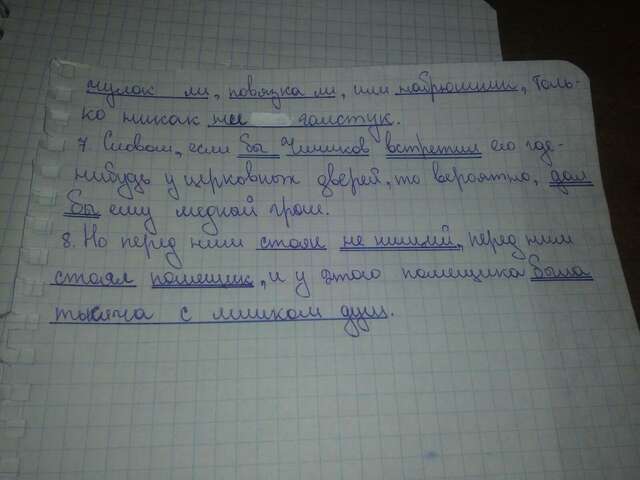 чулок ли, повязка ли, или набрюшник, толь-
ко никак не галстук.
7. Словом, если бы Чичиков встретил его где-
нибудь у церковных дверей, то вероятно, дал
бы ему медной грош.
8. Но перед ним стоял не нищий, перед ним
стоял помещик, и у этого помещика была
тысяча с лишком душ.